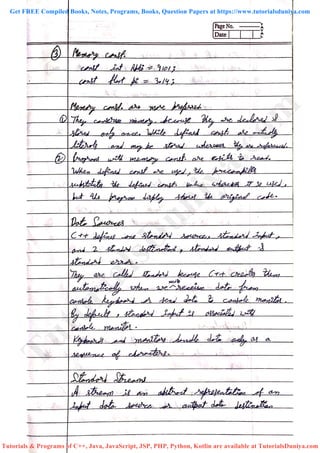 Get FREE Compiled Books, Notes, Programs, Books, Question Papers at https://www.tutorialsduniya.com
Page No.
Date
③ Memory const.
const int = 9101;
const float pi = 3.14;
Memory const. are more preferred.
① They conserve memory, because they are declared &
stored only once. While defined const. are entirely
literals and may be stored wherever they are referenced.
② Program with memory const. are easier to read.
When defined const are used, the precompiler
substitute the defined const. value wherever it is used,
but the program display shows the original code.
Data Sources
C++ defines one standard source, standard input,
and 2 standard destination, standard output &
standard error.
They are called standard because C++ creates them
automatically when we receive data from
console keyboard or send data to console monitor.
By default, standard input is associated with
console monitor.
Keyboards and monitors handle data only as a
sequence of characters.
Standard Streams
A stream is an abstract representation of an
input data source or output data destination.
Tutorials & Programs of C++, Java, JavaScript, JSP, PHP, Python, Kotlin are available at TutorialsDuniya.com